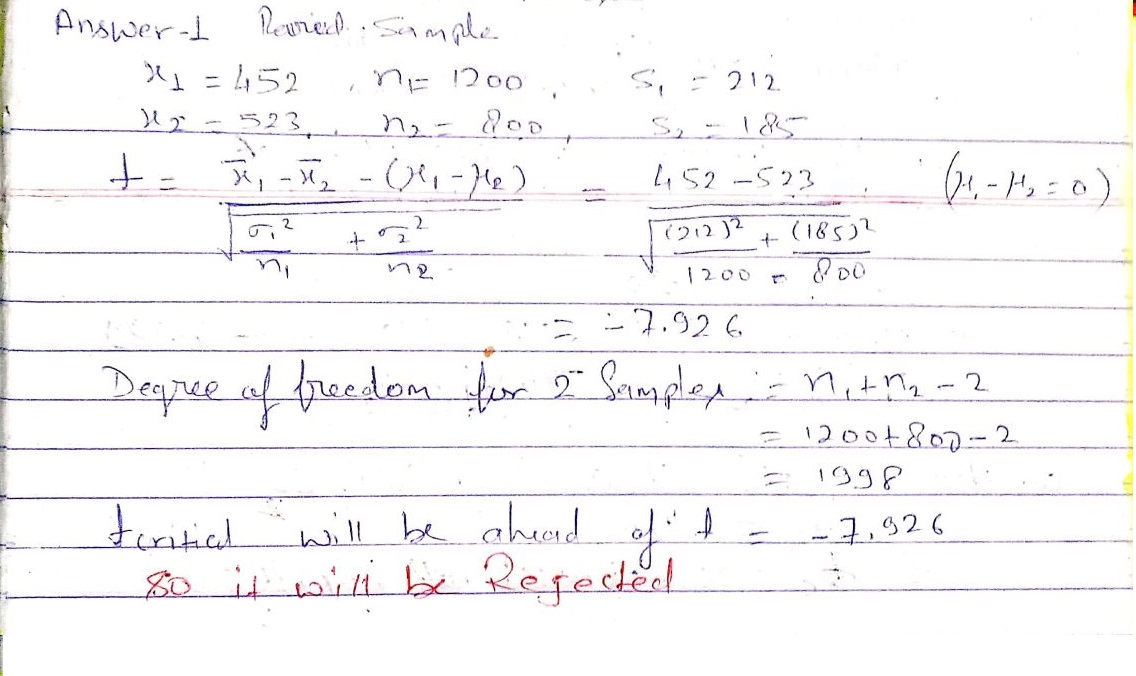 Answer-1 Paired Sample
x₁ = 452, n₁ = 1200, S₁ = 212
x₂ = 523, n₂ = 800, S₂ = 185
t = x̄₁ - x̄₂ - (μ₁ - μ₂) / √(σ₁²/n₁ + σ₂²/n₂) = 452 - 523 / √((212)²/1200 + (185)²/800) (μ₁ - μ₂ = 0)
= -7.926
Degree of freedom for 2 Samples = n₁ + n₂ - 2
= 1200 + 800 - 2
= 1998
tcritical will be ahead of t = -7.926
So it will be Rejected